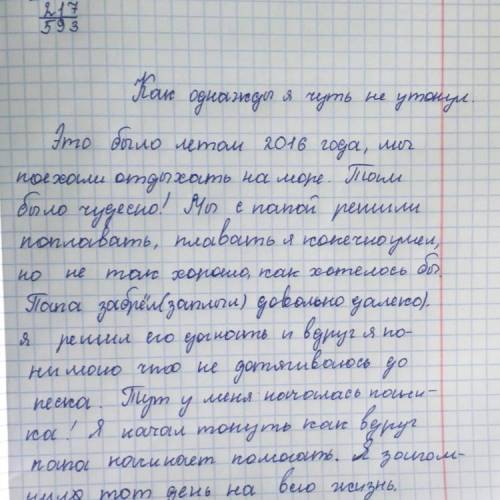 217
593
Как однажды я чуть не утонул.
Это было летом 2016 года, мы
поехали отдыхать на море. Там
было чудесно! Мы с папой решили
поплавать, плавать я конечно умел,
но не так хорошо, как хотелось бы.
Папа забрёл(заплыл) довольно далеко).
Я решил его догнать и вдруг я по-
нимаю что не дотягиваюсь до
песка. Тут у меня началась пани-
ка! Я начал тонуть как вдруг
папа начинает помогать. Я запом-
нила тот день на всю жизнь.